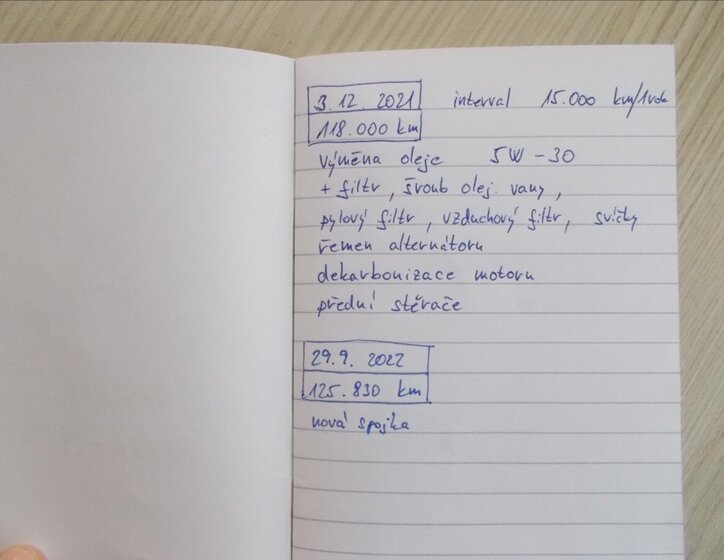 3.12.2021 interval 15.000 km/1rok
118.000 km
výměna oleje 5W-30
+ filtr, šroub olej. vany,
pylový filtr, vzduchový filtr, svíčky
řemen alternátoru
dekarbonizace motoru
přední stěrače
29.9.2022
125.830 km
nová spojka